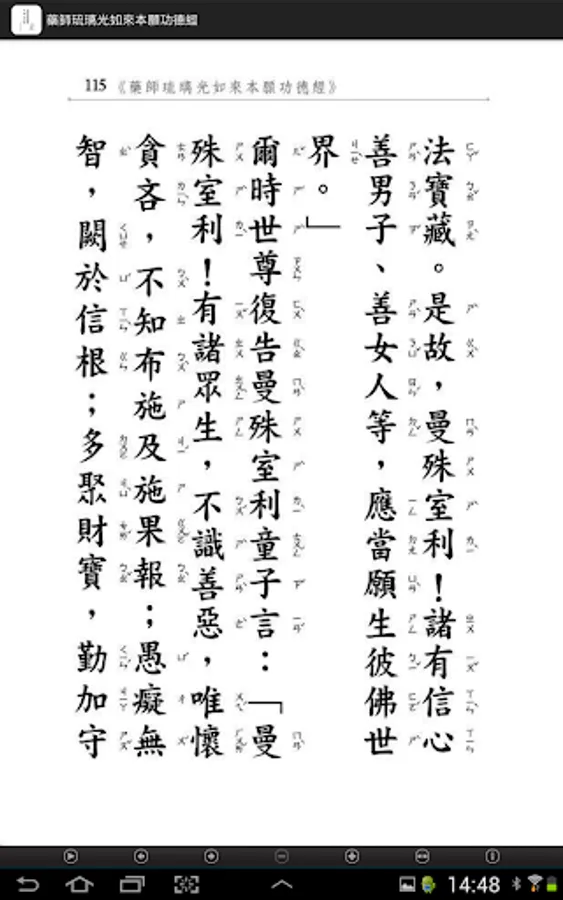 藥師琉璃光如來本願功德經
115《藥師琉璃光如來本願功德經》
法寶藏。是故,曼殊室利!諸有信心
善男子、善女人等,應當願生彼佛世
界。」
爾時世尊復告曼殊室利童子言:「曼
殊室利!有諸眾生,不識善惡,唯懷
貪吝,不知布施及施果報;愚癡無
智,闕於信根;多聚財寶,勤加守
14:48